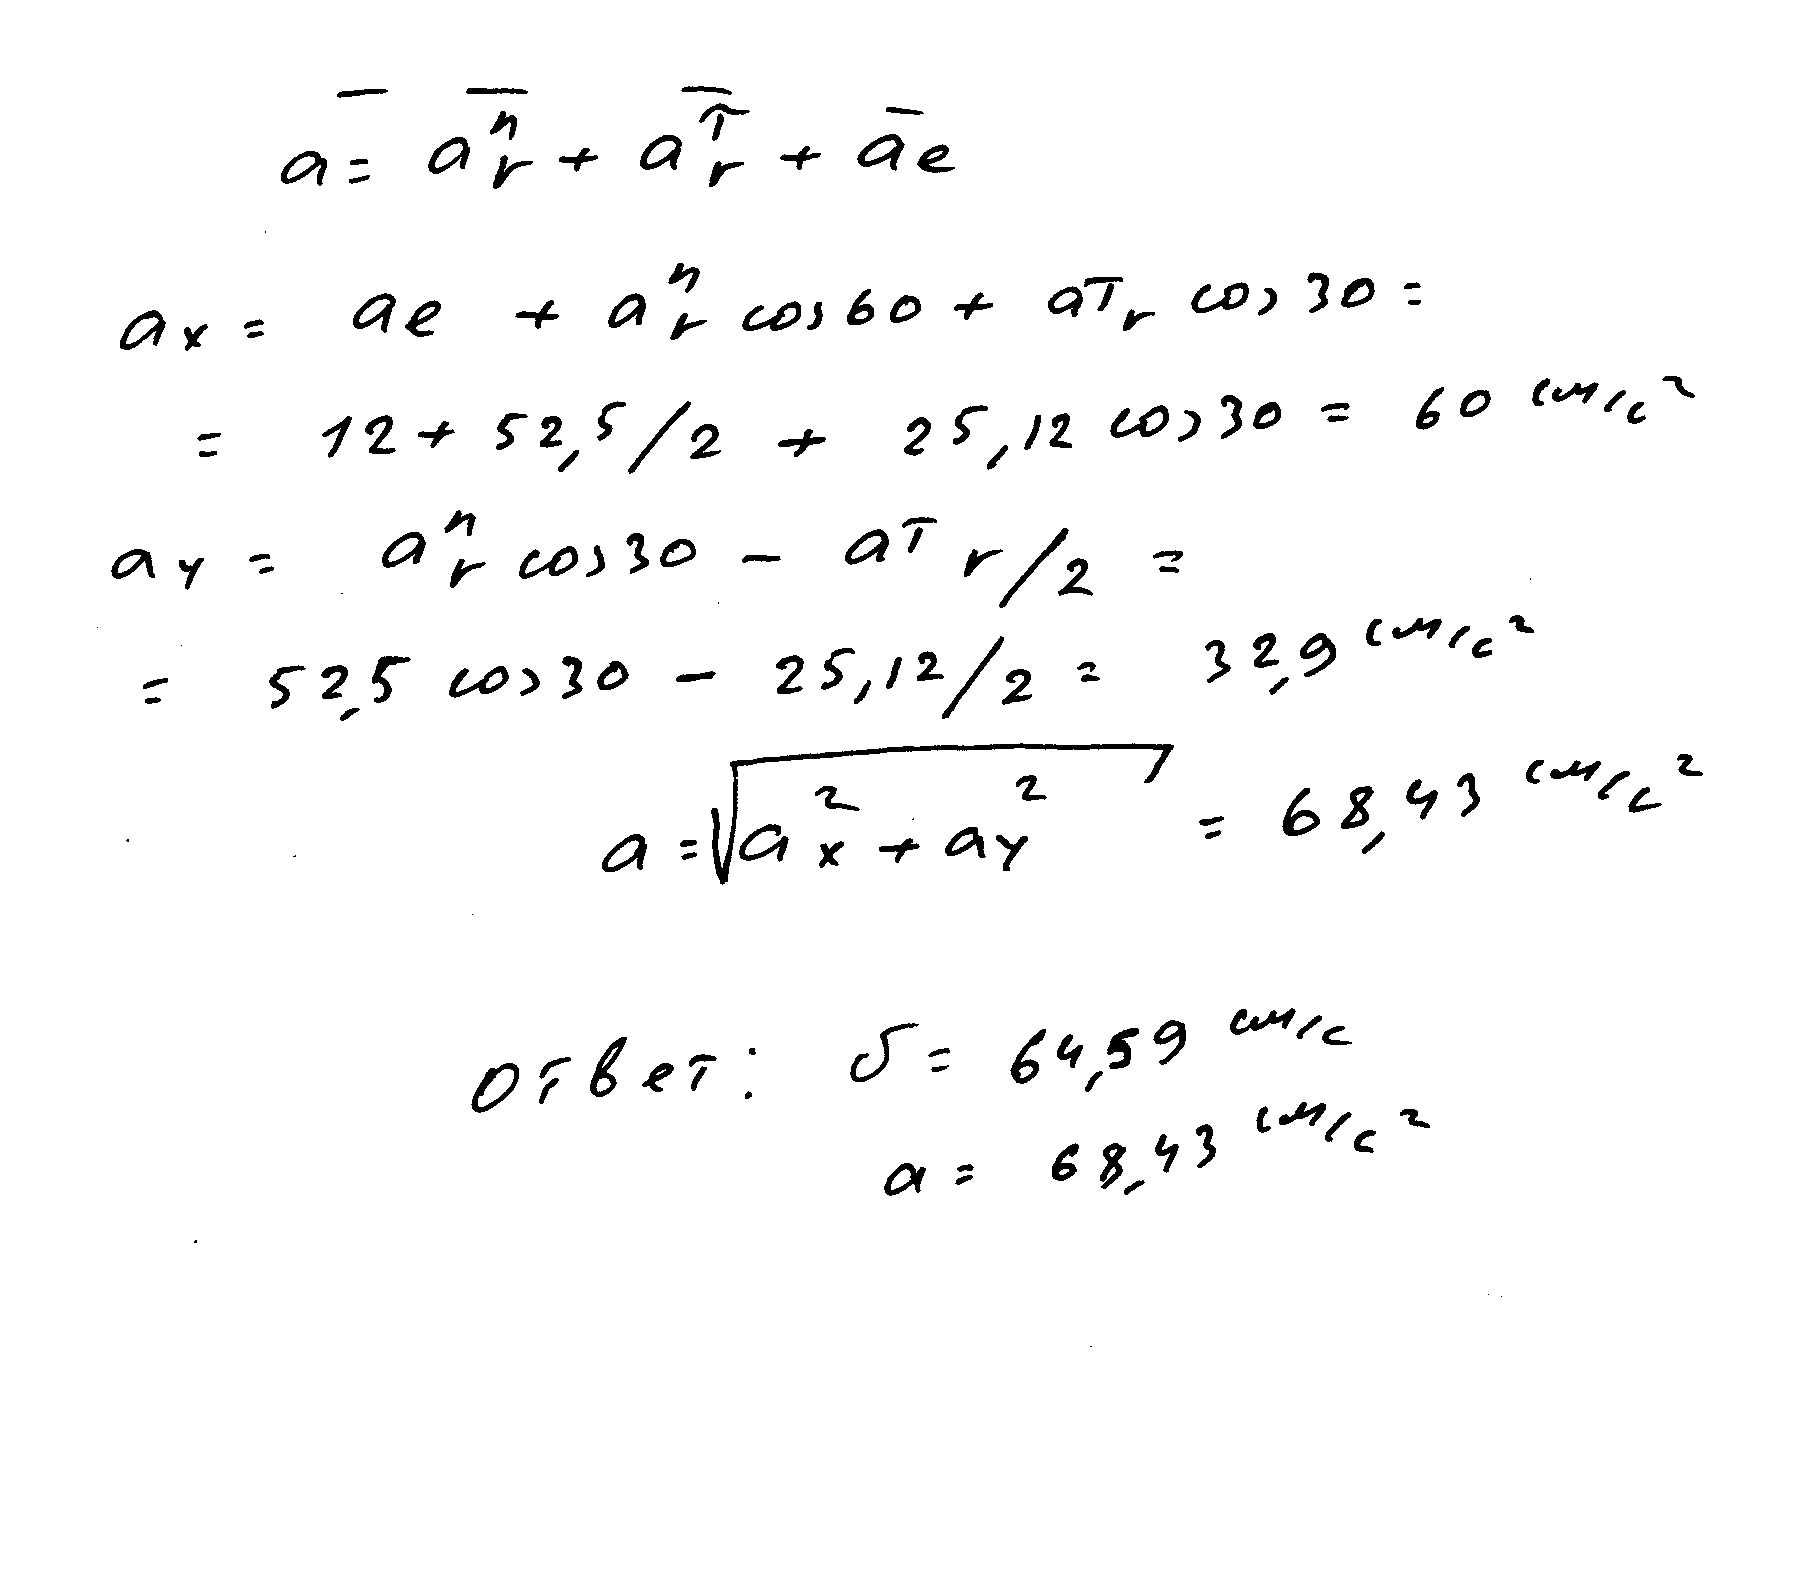 a̅ = a̅ⁿᵣ + a̅ᵀᵣ + a̅e
ax = ae + aⁿᵣ cos60 + aᵀᵣ cos30 =
= 12 + 52,5/2 + 25,12 cos30 = 60 см/с²
ay = aⁿᵣ cos30 - aᵀᵣ/2 =
= 52,5 cos30 - 25,12/2 = 32,9 см/с²
a = √(ax² + ay²) = 68,43 см/с²
Ответ: υ = 64,59 см/с
a = 68,43 см/с²